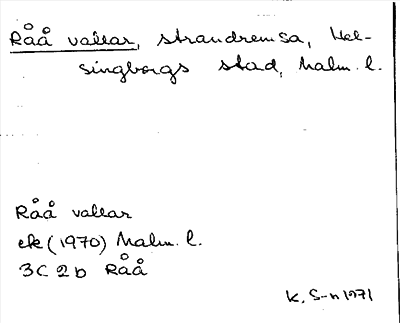 Råå vallar, strandremsa, Hel-
singborgs stad, Malm. l.
Råå vallar
ek (1970) Malm. l.
3C 2b Råå
K. S-n 1971